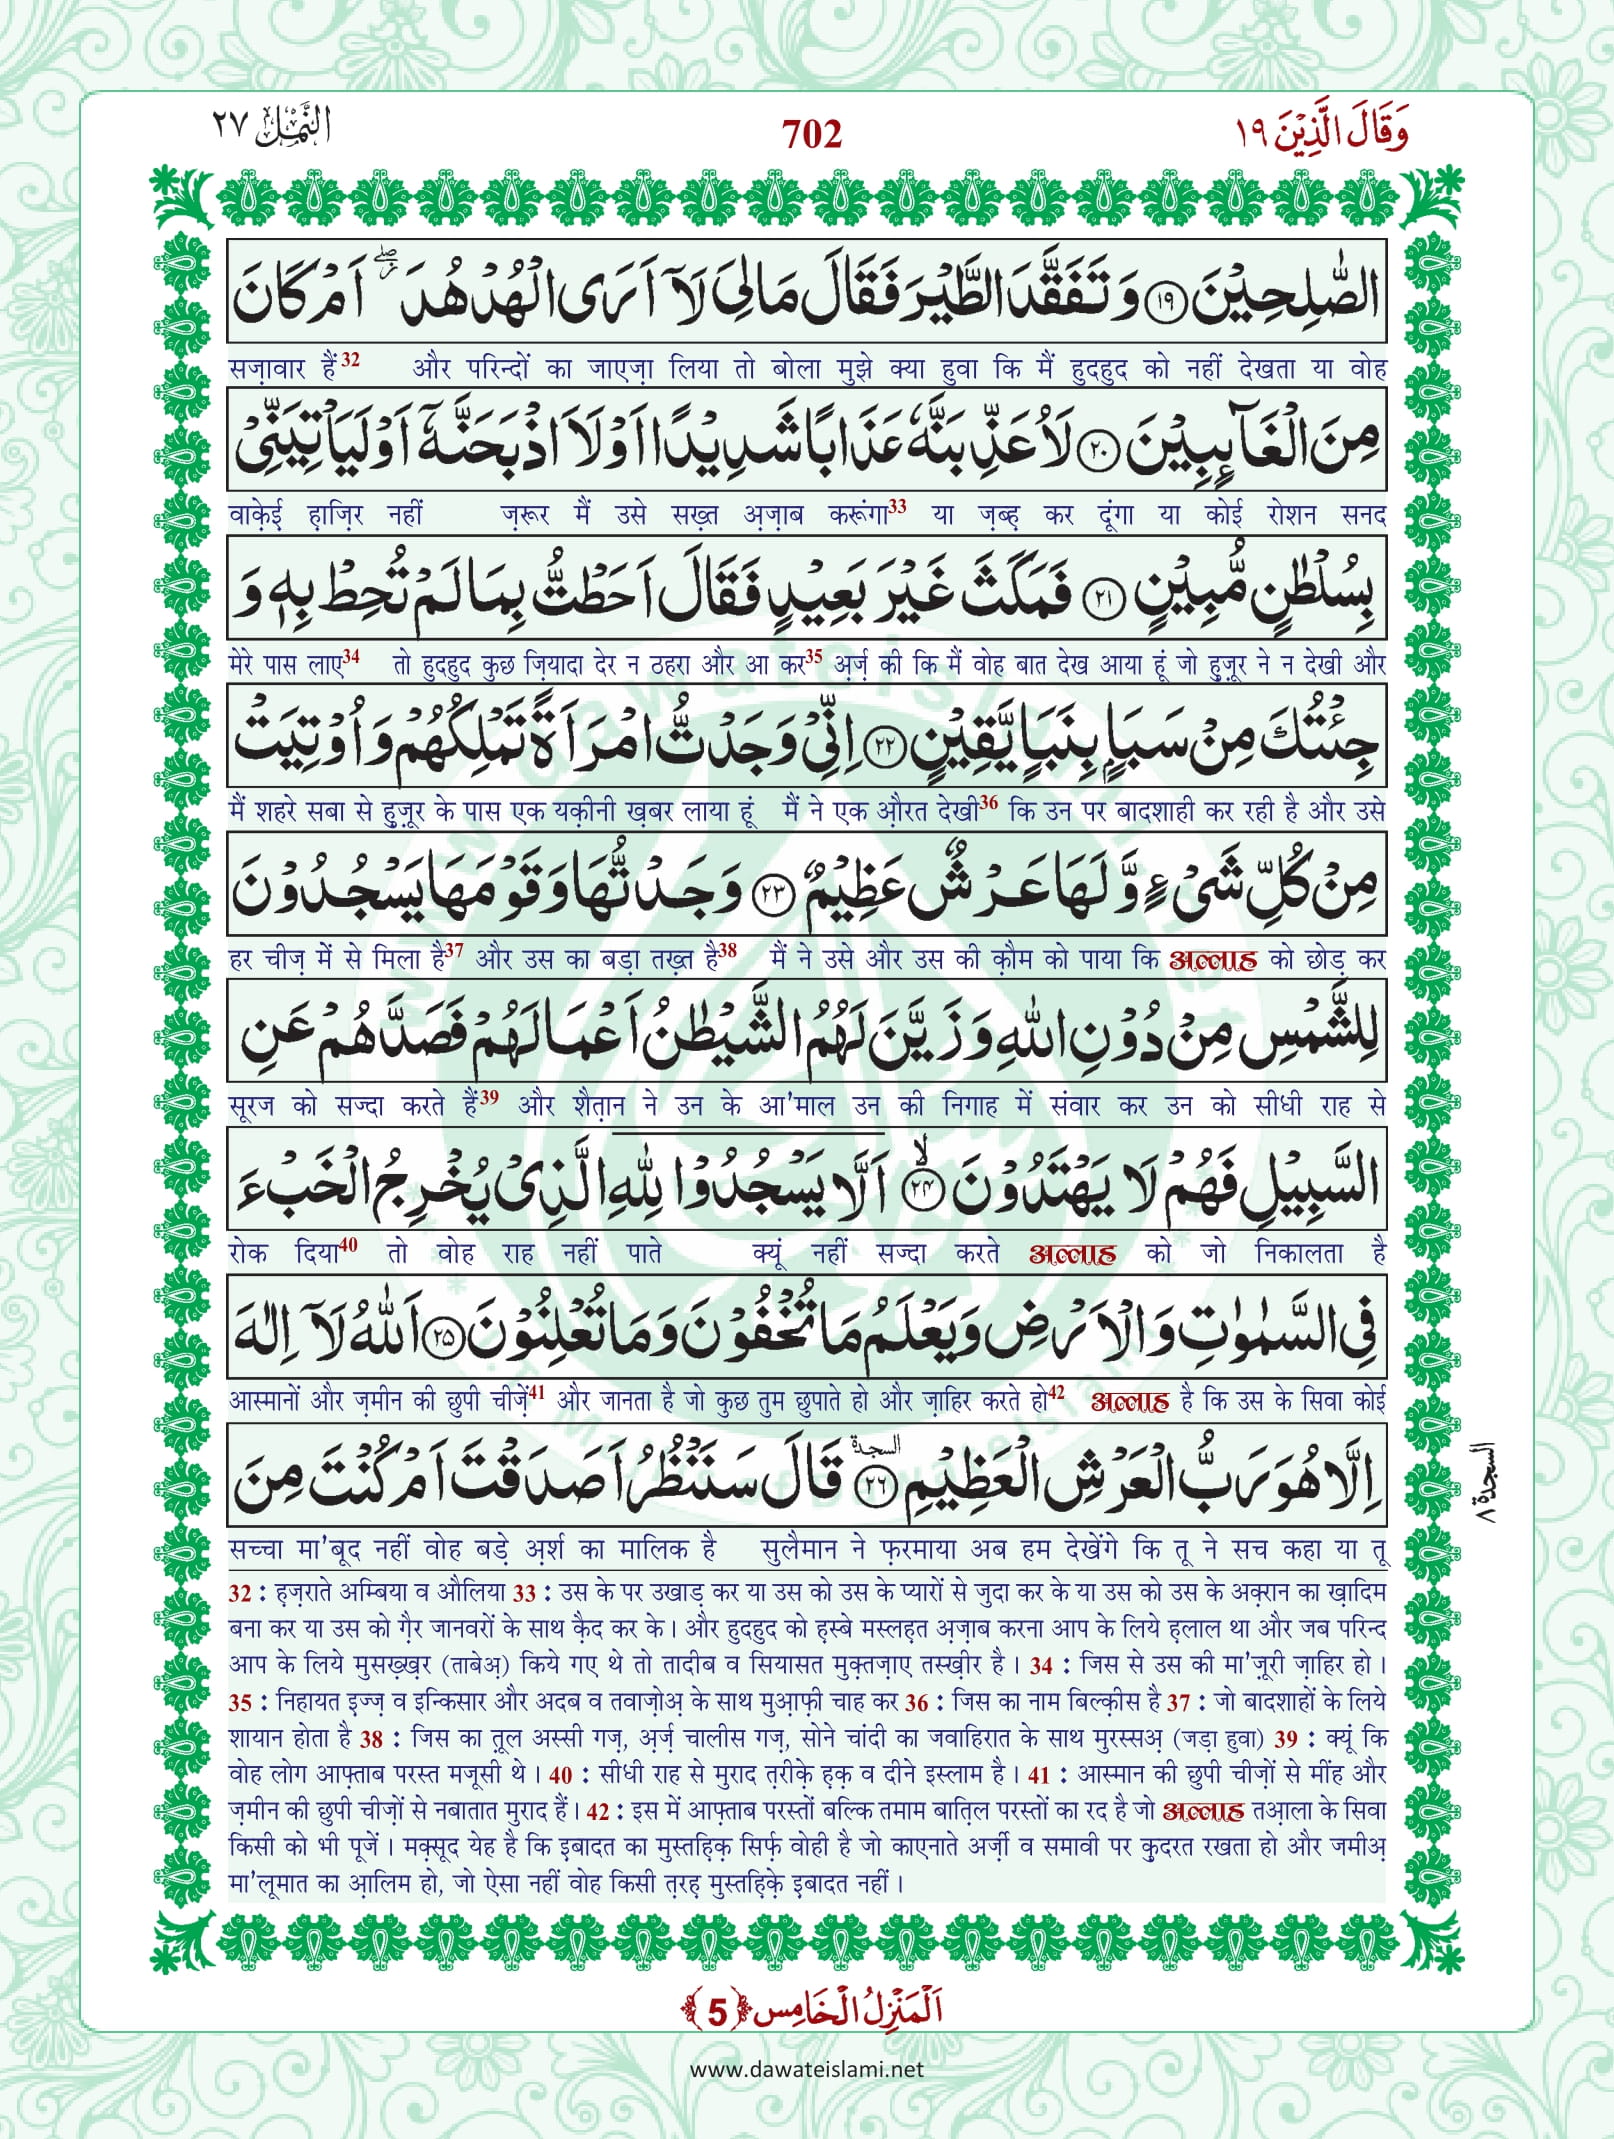 وَقَالَ الَّذِيْنَ ١٩ 702 النَّمْل ٢٧
الصّٰلِحِيْنَ ﴿١٩﴾ وَ تَفَقَّدَ الطَّيْرَ فَقَالَ مَا لِيَ لَاۤ اَرَى الْهُدْهُدَ ۖ٘ اَمْ كَانَ
सज़ावार हैं32 और परिन्दों का जाएज़ा लिया तो बोला मुझे क्या हुवा कि मैं हुदहुद को नहीं देखता या वोह
مِنَ الْغَآىِٕبِيْنَ ﴿٢٠﴾ لَاُعَذِّبَنَّهٗ عَذَابًا شَدِيْدًا اَوْ لَاَاذْبَحَنَّهٗۤ اَوْ لَيَاْتِيَنِّيْ
वाक़ेई ह़ाज़िर नहीं ज़रूर मैं उसे सख़्त अ़ज़ाब करूंगा33 या ज़ब्ह़ कर दूंगा या कोई रोशन सनद
بِسُلْطٰنٍ مُّبِيْنٍ ﴿٢١﴾ فَمَكَثَ غَيْرَ بَعِيْدٍ فَقَالَ اَحَطْتُّ بِمَا لَمْ تُحِطْ بِهٖ وَ
मेरे पास लाए34 तो हुदहुद कुछ ज़ियादा देर न ठहरा और आ कर35 अ़र्ज़ की कि मैं वोह बात देख आया हूं जो हुज़ूर ने न देखी और
جِئْتُكَ مِنْ سَبَاٍۭ بِنَبَاٍ يَّقِيْنٍ ﴿٢٢﴾ اِنِّيْ وَجَدْتُّ امْرَاَةً تَمْلِكُهُمْ وَ اُوْتِيَتْ
मैं शहरे सबा से हुज़ूर के पास एक यक़ीनी ख़बर लाया हूं मैं ने एक औ़रत देखी36 कि उन पर बादशाही कर रही है और उसे
مِنْ كُلِّ شَيْءٍ وَّ لَهَا عَرْشٌ عَظِيْمٌ ﴿٢٣﴾ وَجَدْتُّهَا وَ قَوْمَهَا يَسْجُدُوْنَ
हर चीज़ में से मिला है37 और उस का बड़ा तख़्त है38 मैं ने उसे और उस की क़ौम को पाया कि अल्लाह को छोड़ कर
لِلشَّمْسِ مِنْ دُوْنِ اللّٰهِ وَ زَيَّنَ لَهُمُ الشَّيْطٰنُ اَعْمَالَهُمْ فَصَدَّهُمْ عَنِ
सूरज को सज्दा करते हैं39 और शैत़ान ने उन के आ'माल उन की निगाह में संवार कर उन को सीधी राह से
السَّبِيْلِ فَهُمْ لَا يَهْتَدُوْنَ ۙ﴿٢٤﴾ اَلَّا يَسْجُدُوْا لِلّٰهِ الَّذِيْ يُخْرِجُ الْخَبْءَ
रोक दिया40 तो वोह राह नहीं पाते क्यूं नहीं सज्दा करते अल्लाह को जो निकालता है
فِي السَّمٰوٰتِ وَ الْاَرْضِ وَ يَعْلَمُ مَا تُخْفُوْنَ وَ مَا تُعْلِنُوْنَ ﴿٢٥﴾ اَللّٰهُ لَاۤ اِلٰهَ
आस्मानों और ज़मीन की छुपी चीज़ें41 और जानता है जो कुछ तुम छुपाते हो और ज़ाहिर करते हो42 अल्लाह है कि उस के सिवा कोई
اِلَّا هُوَ رَبُّ الْعَرْشِ الْعَظِيْمِ السجدة ﴿٢٦﴾ قَالَ سَنَنْظُرُ اَصَدَقْتَ اَمْ كُنْتَ مِنَ
السجدة ٨
सच्चा मा'बूद नहीं वोह बड़े अ़र्श का मालिक है सुलैमान ने फ़रमाया अब हम देखेंगे कि तू ने सच कहा या तू
32 : ह़ज़राते अम्बिया व औलिया 33 : उस के पर उखाड़ कर या उस को उस के प्यारों से जुदा कर के या उस को उस के अक़्रान का ख़ादिम
बना कर या उस को ग़ैर जानवरों के साथ क़ैद कर के । और हुदहुद को ह़स्बे मस्लह़त अ़ज़ाब करना आप के लिये ह़लाल था और जब परिन्द
आप के लिये मुसख़्ख़र (ताबेअ़) किये गए थे तो तादीब व सियासत मुक़्तज़ाए तस्ख़ीर है । 34 : जिस से उस की मा'ज़ूरी ज़ाहिर हो ।
35 : निहायत इ़ज्ज़ व इन्किसार और अदब व तवाज़ोअ़ के साथ मुआ़फ़ी चाह कर 36 : जिस का नाम बिल्क़ीस है 37 : जो बादशाहों के लिये
शायान होता है 38 : जिस का त़ूल अस्सी गज़, अ़र्ज़ चालीस गज़, सोने चांदी का जवाहिरात के साथ मुरस्सअ़ (जड़ा हुवा) 39 : क्यूं कि
वोह लोग आफ़्ताब परस्त मजूसी थे । 40 : सीधी राह से मुराद त़रीक़े ह़क़ व दीने इस्लाम है । 41 : आस्मान की छुपी चीज़ों से मींह और
ज़मीन की छुपी चीज़ों से नबातात मुराद हैं । 42 : इस में आफ़्ताब परस्तों बल्कि तमाम बात़िल परस्तों का रद है जो अल्लाह तआ़ला के सिवा
किसी को भी पूजें । मक़्सूद येह है कि इ़बादत का मुस्तह़िक़ सिर्फ़ वोही है जो काएनाते अर्ज़ी व समावी पर क़ुदरत रखता हो और जमीअ़
मा'लूमात का आ़लिम हो, जो ऐसा नहीं वोह किसी त़रह़ मुस्तह़िक़े इ़बादत नहीं ।
اَلْمَنْزِلُ الْخَامِس ﴿5﴾
www.dawateislami.net